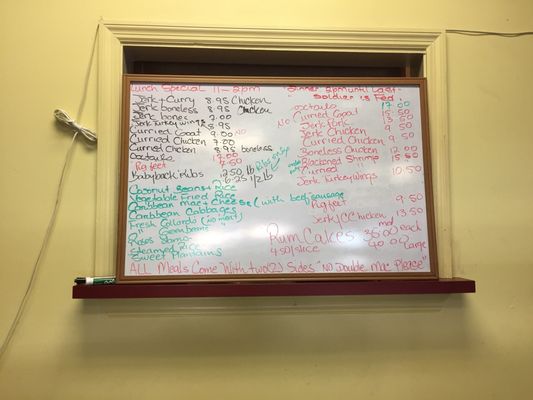 Lunch Special 11-2pm
Jerk + Curry 8.95 Chicken
Jerk boneless 8.95 Chicken
Jerk bones 7.00
Jerk Turkey wings 8.95
Curried Goat 9.00 NO
Curried Chicken 7.00
Curried Chicken 8.95 boneless
Oxtails 17.00
Pig feet 9.50
Babyback Ribs 12.50 lb
6.25 1/2 lb
Ribs only
Coconut Beans + Rice
Vegetable Fried Rice
Caribbean Mac + Cheese (with beef sausage
Caribbean Cabbages
Fresh Collards (no meat)
" Greenbeans
Steamed rice
Sweet Plantains
Dinner 2pm until Last
Soldier is Fed.
Oxtails 17.00
NO Curried Goat 15.50
Jerk Pork 13.50
Jerk Chicken 9.50
Curried Chicken 9.50
Boneless Chicken 12.00
Blackened Shrimp 15.50
Curried "
Jerk Turkey wings 10.50
Pig feet 9.50
Jerk/CC Chicken 13.50
Rum Cakes 36.00 each
4.50/slice 40.00 Large
ALL Meals Come With two(2) Sides "NO Double Mac Please"